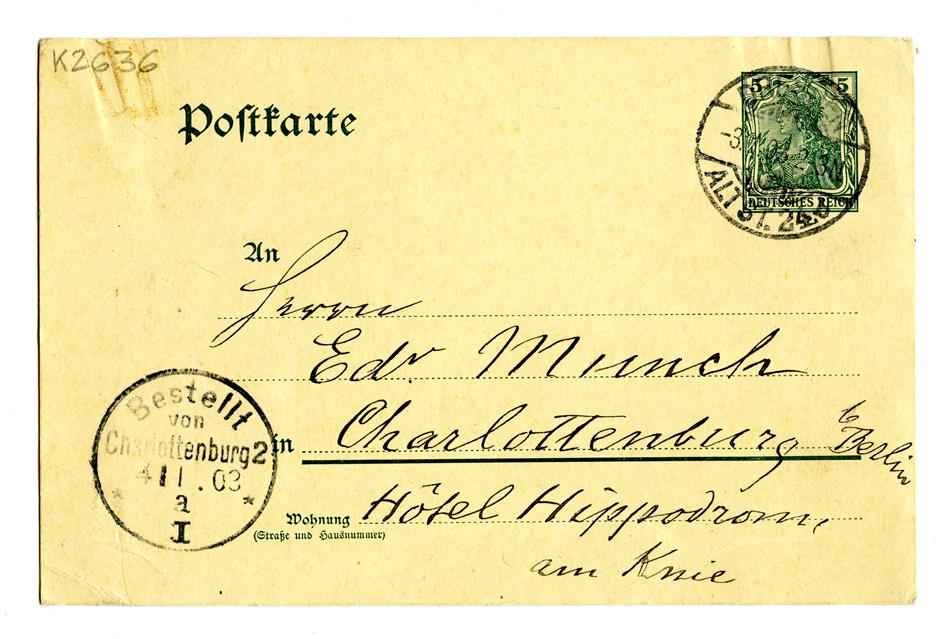 K2636
Postkarte
5 5
DEUTSCHES REICH
ALTST. 24.
An
Herrn
Edv Munch
in Charlottenburg b Berlin
Wohnung Hôtel Hippodrom,
(Straße und Hausnummer)
am Knie
Bestellt
von
Charlottenburg 2
4 11 . 03
a
I